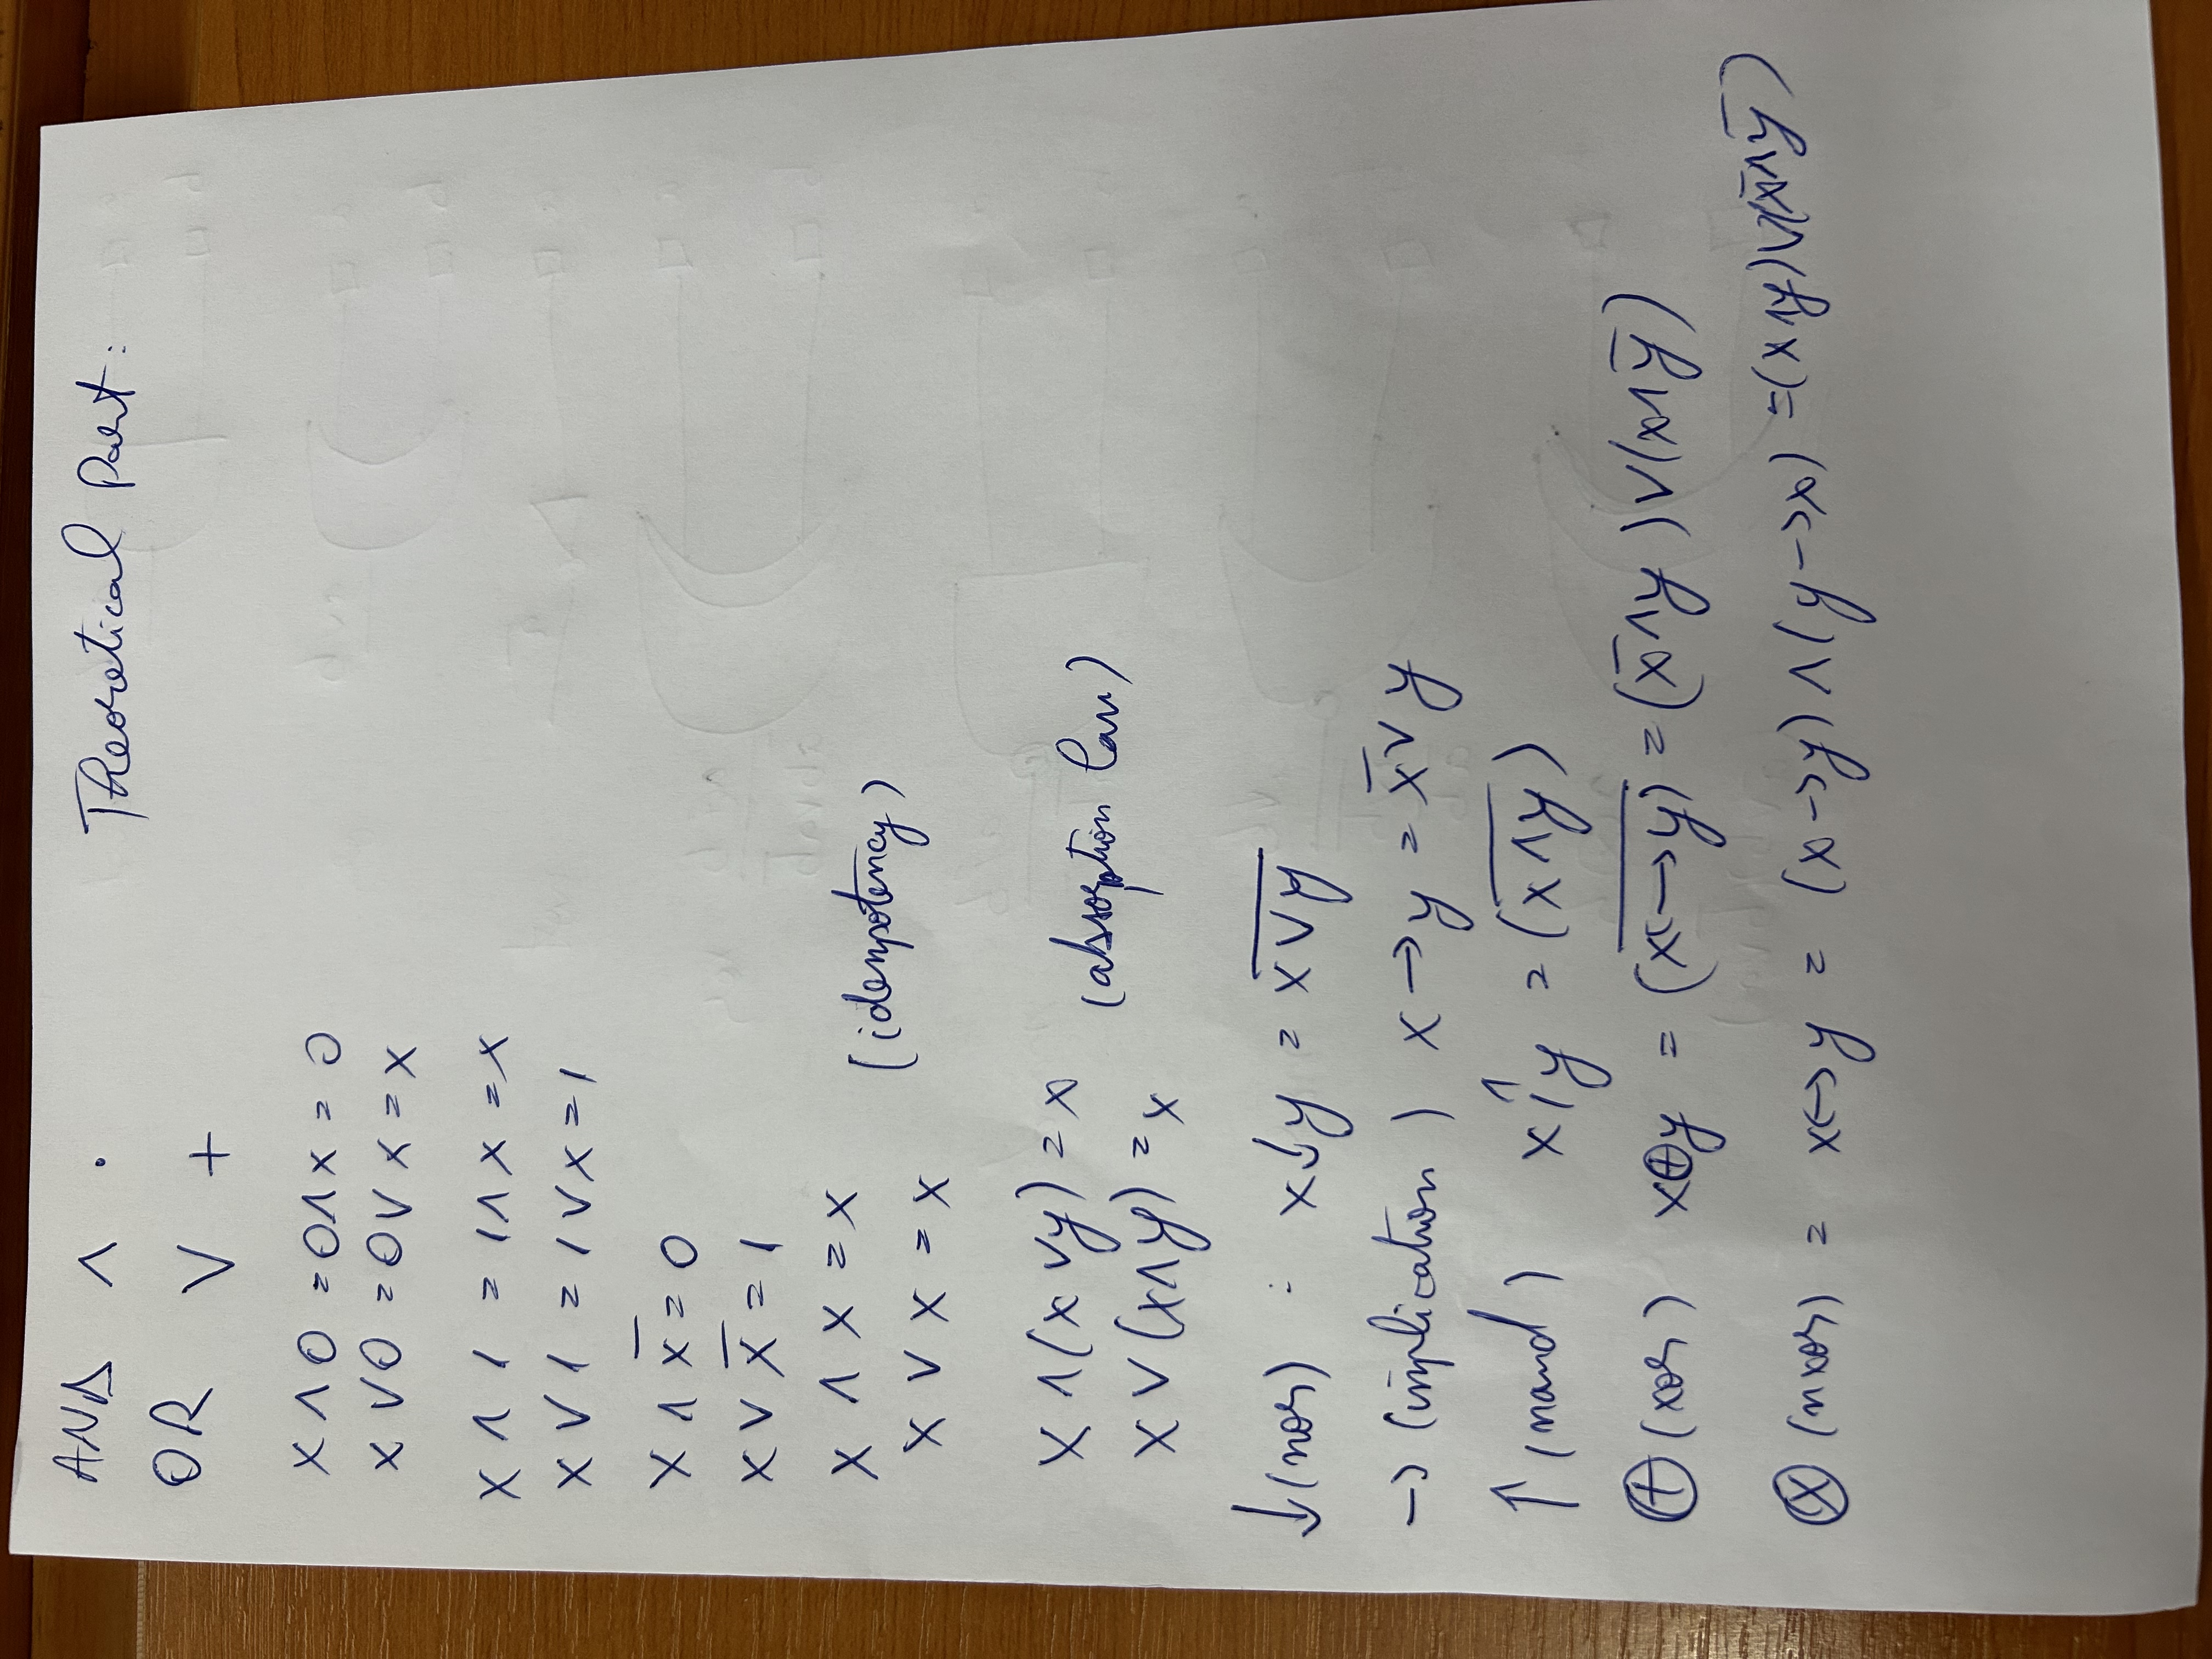 AND ∧ ·
Theoretical Part:
OR ∨ +
x ∧ 0 = 0 ∧ x = 0
x ∨ 0 = 0 ∨ x = x
x ∧ 1 = 1 ∧ x = x
x ∨ 1 = 1 ∨ x = 1
x ∧ x̅ = 0
x ∨ x̅ = 1
x ∧ x = x
(idempotency)
x ∨ x = x
x ∧ (x ∨ y) = x
(absorption law)
x ∨ (x ∧ y) = x
↓ (nor) : x ↓ y = x̅ ̅∨̅ ̅y̅
→ (implication) x → y = x̅ ∨ y
↑ (nand) x ↑ y = (x̅ ̅∧̅ ̅y̅)
⊕ (xor) x ⊕ y = (x̅ ̅↔̅ ̅y̅) = (x̅ ∧ y) ∨ (x ∧ y̅)
⊗ (nxor) = x ↔ y = (x → y) ∧ (y → x) = (x ∧ y) ∨ (x̅ ∧ y̅)